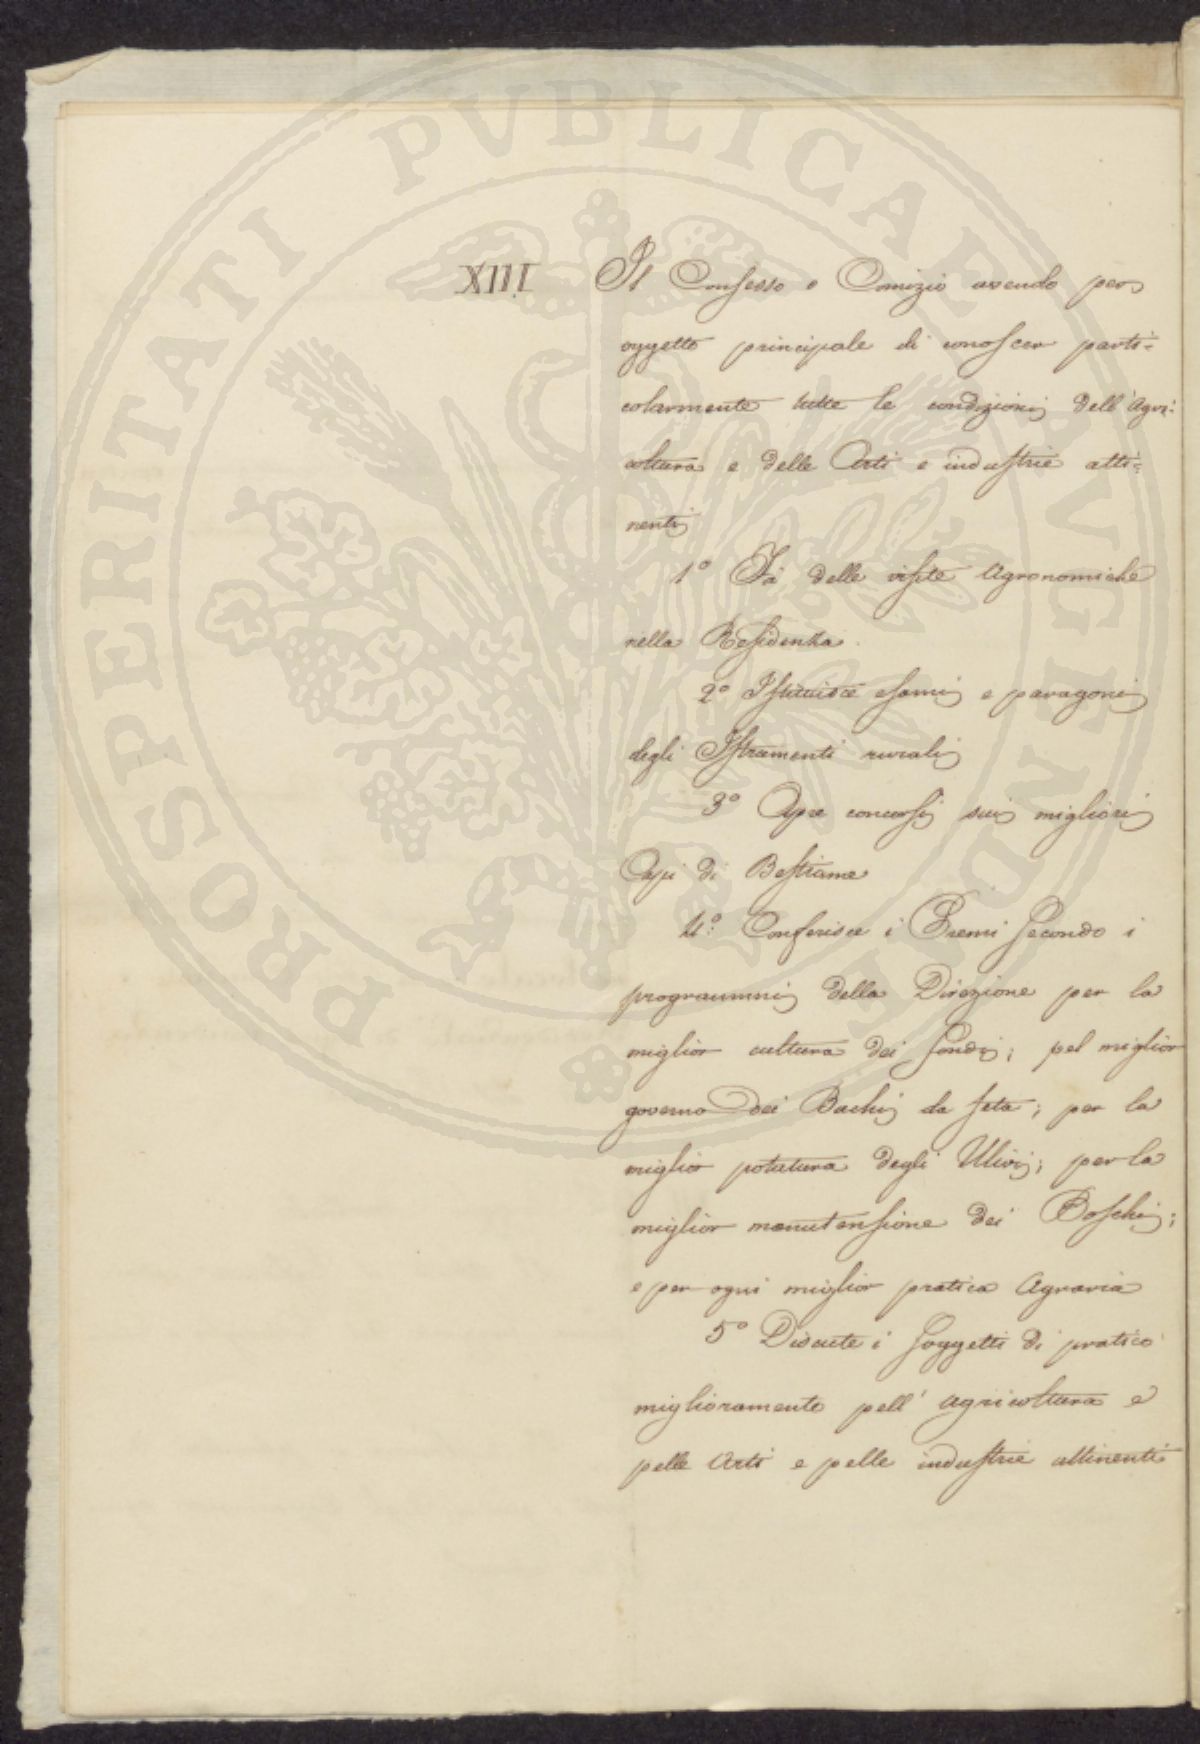 PROSPERITATI PVBLICAE AVGENDAE
XIII Il Consesso o Comizio avendo per
oggetto principale di conoscer parti=
colarmente tutte le condizioni dell'Agri=
coltura e delle Arti e industrie atti=
nenti
1º Fà delle visite Agronomiche
nella Residenza.
2º Istituisce esami e paragoni
degli Istramenti rurali
3º Apre concorsi sui migliori
Capi di Bestiame
4º. Conferisce i Premi secondo i
programmi della Direzione per la
miglior cultura dei fondi; pel miglior
governo dei Bachi da seta; per la
miglior potatura degli Ulivi; per la
miglior manutensione dei Boschi;
e per ogni miglior pratica Agraria
5º Discute i soggetti di pratico
miglioramento pell'agricoltura e
pelle Arti e pelle industrie attinenti